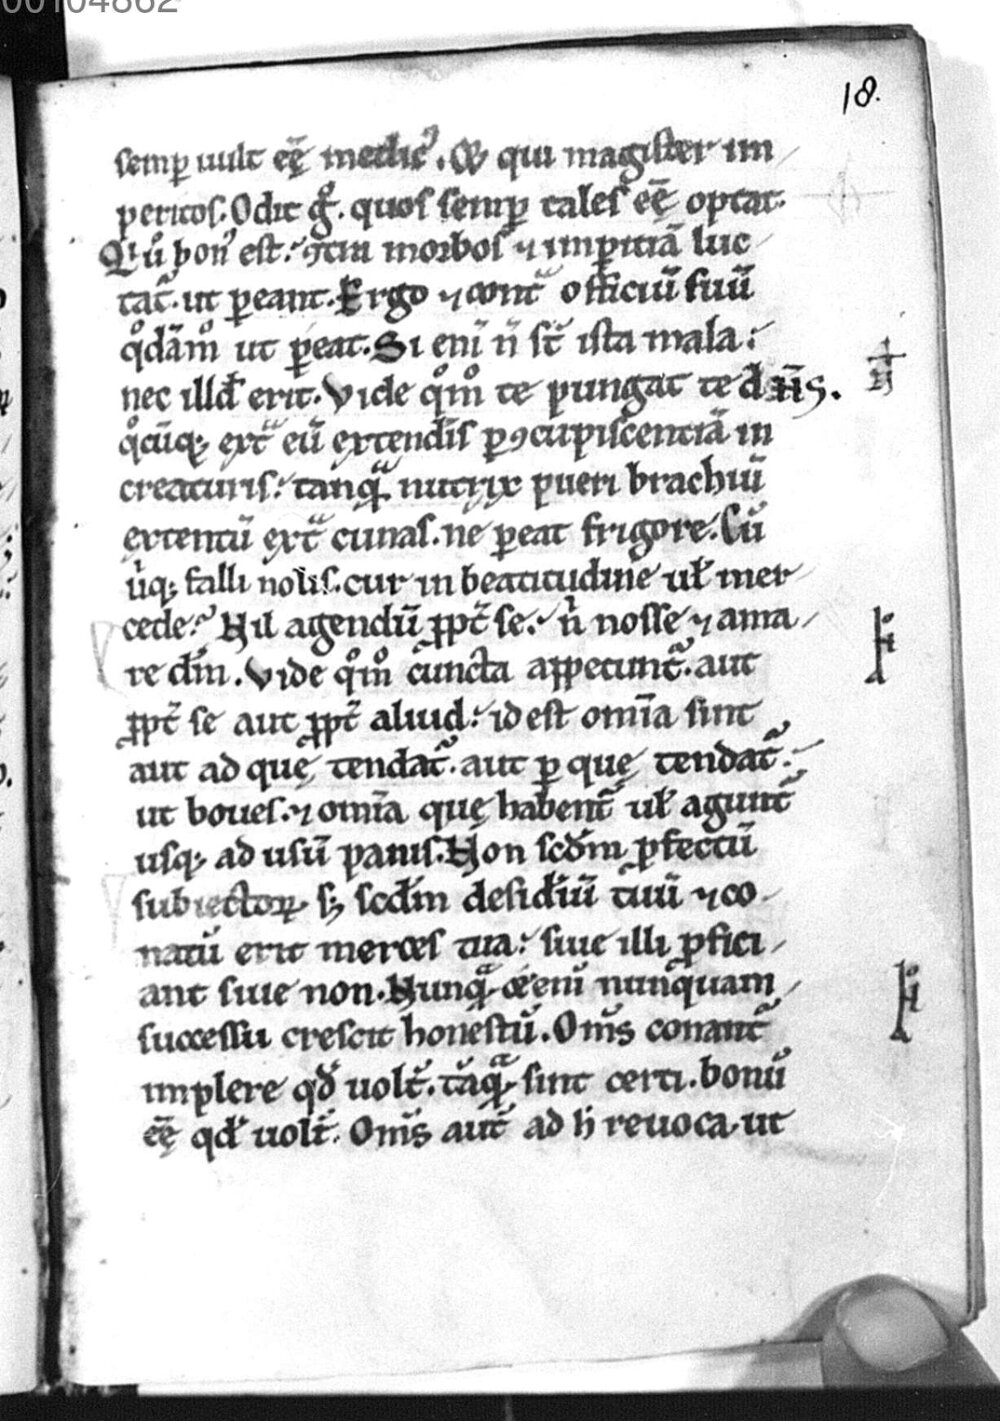 00104862
18.
semꝑ uult eē᷎ medic᷒. Qđ qui magister im
peritos. Odit gͦ. quos semꝑ tales eē᷎ optat.
Qui bon᷒ est. ꝯtra morbos ⁊ imꝑitiā luc
tat᷑. ut ꝑeant. Ergo ⁊ cont̄ officiū suū
qͦdām̊ ut ꝑeat. Si eni n̄ st̄ ista mala.
nec illđ erit. Vide qͦm̊ te pungat te dn̄s.
qͦcūq; ext̄ eū extendis ꝑ ꝯcupiscentiā in
creaturis. tanqͣ nutrix pueri brachiū
extentū ext̄ cunas. ne ꝑeat frigore. Cū
uq; falli nolis. cur in beatitudine uł mer
cede? Nil agendū ꝓpt̄ se. n̄ nosse ⁊ ama
re dm̄. Vide qͦm̊ cuncta appetunt᷑. aut
ꝓpt̄ se aut ꝓpt̄ aliud. id est om̄ia sint
aut ad quę tendat᷑. aut ꝑ quę tendat᷑.
ut boues. ⁊ om̄ia quę habent᷑ uł agunt᷑
usq; ad usū panis. Non scđm ꝓfectū
subiectoꝝ. sꝫ scđm desideriū tuū ⁊ co
natū erit merces tua. siue illi ꝓfici
ant siue non. Nunqͣ eni nunquam
successu crescit honestū. Om̄s conant᷑
implere qđ uolt̄. tāqͣ sint certi. bonū
eē᷎ qđ uolt̄. Om̄s aut̄ ad h̄ reuoca. ut